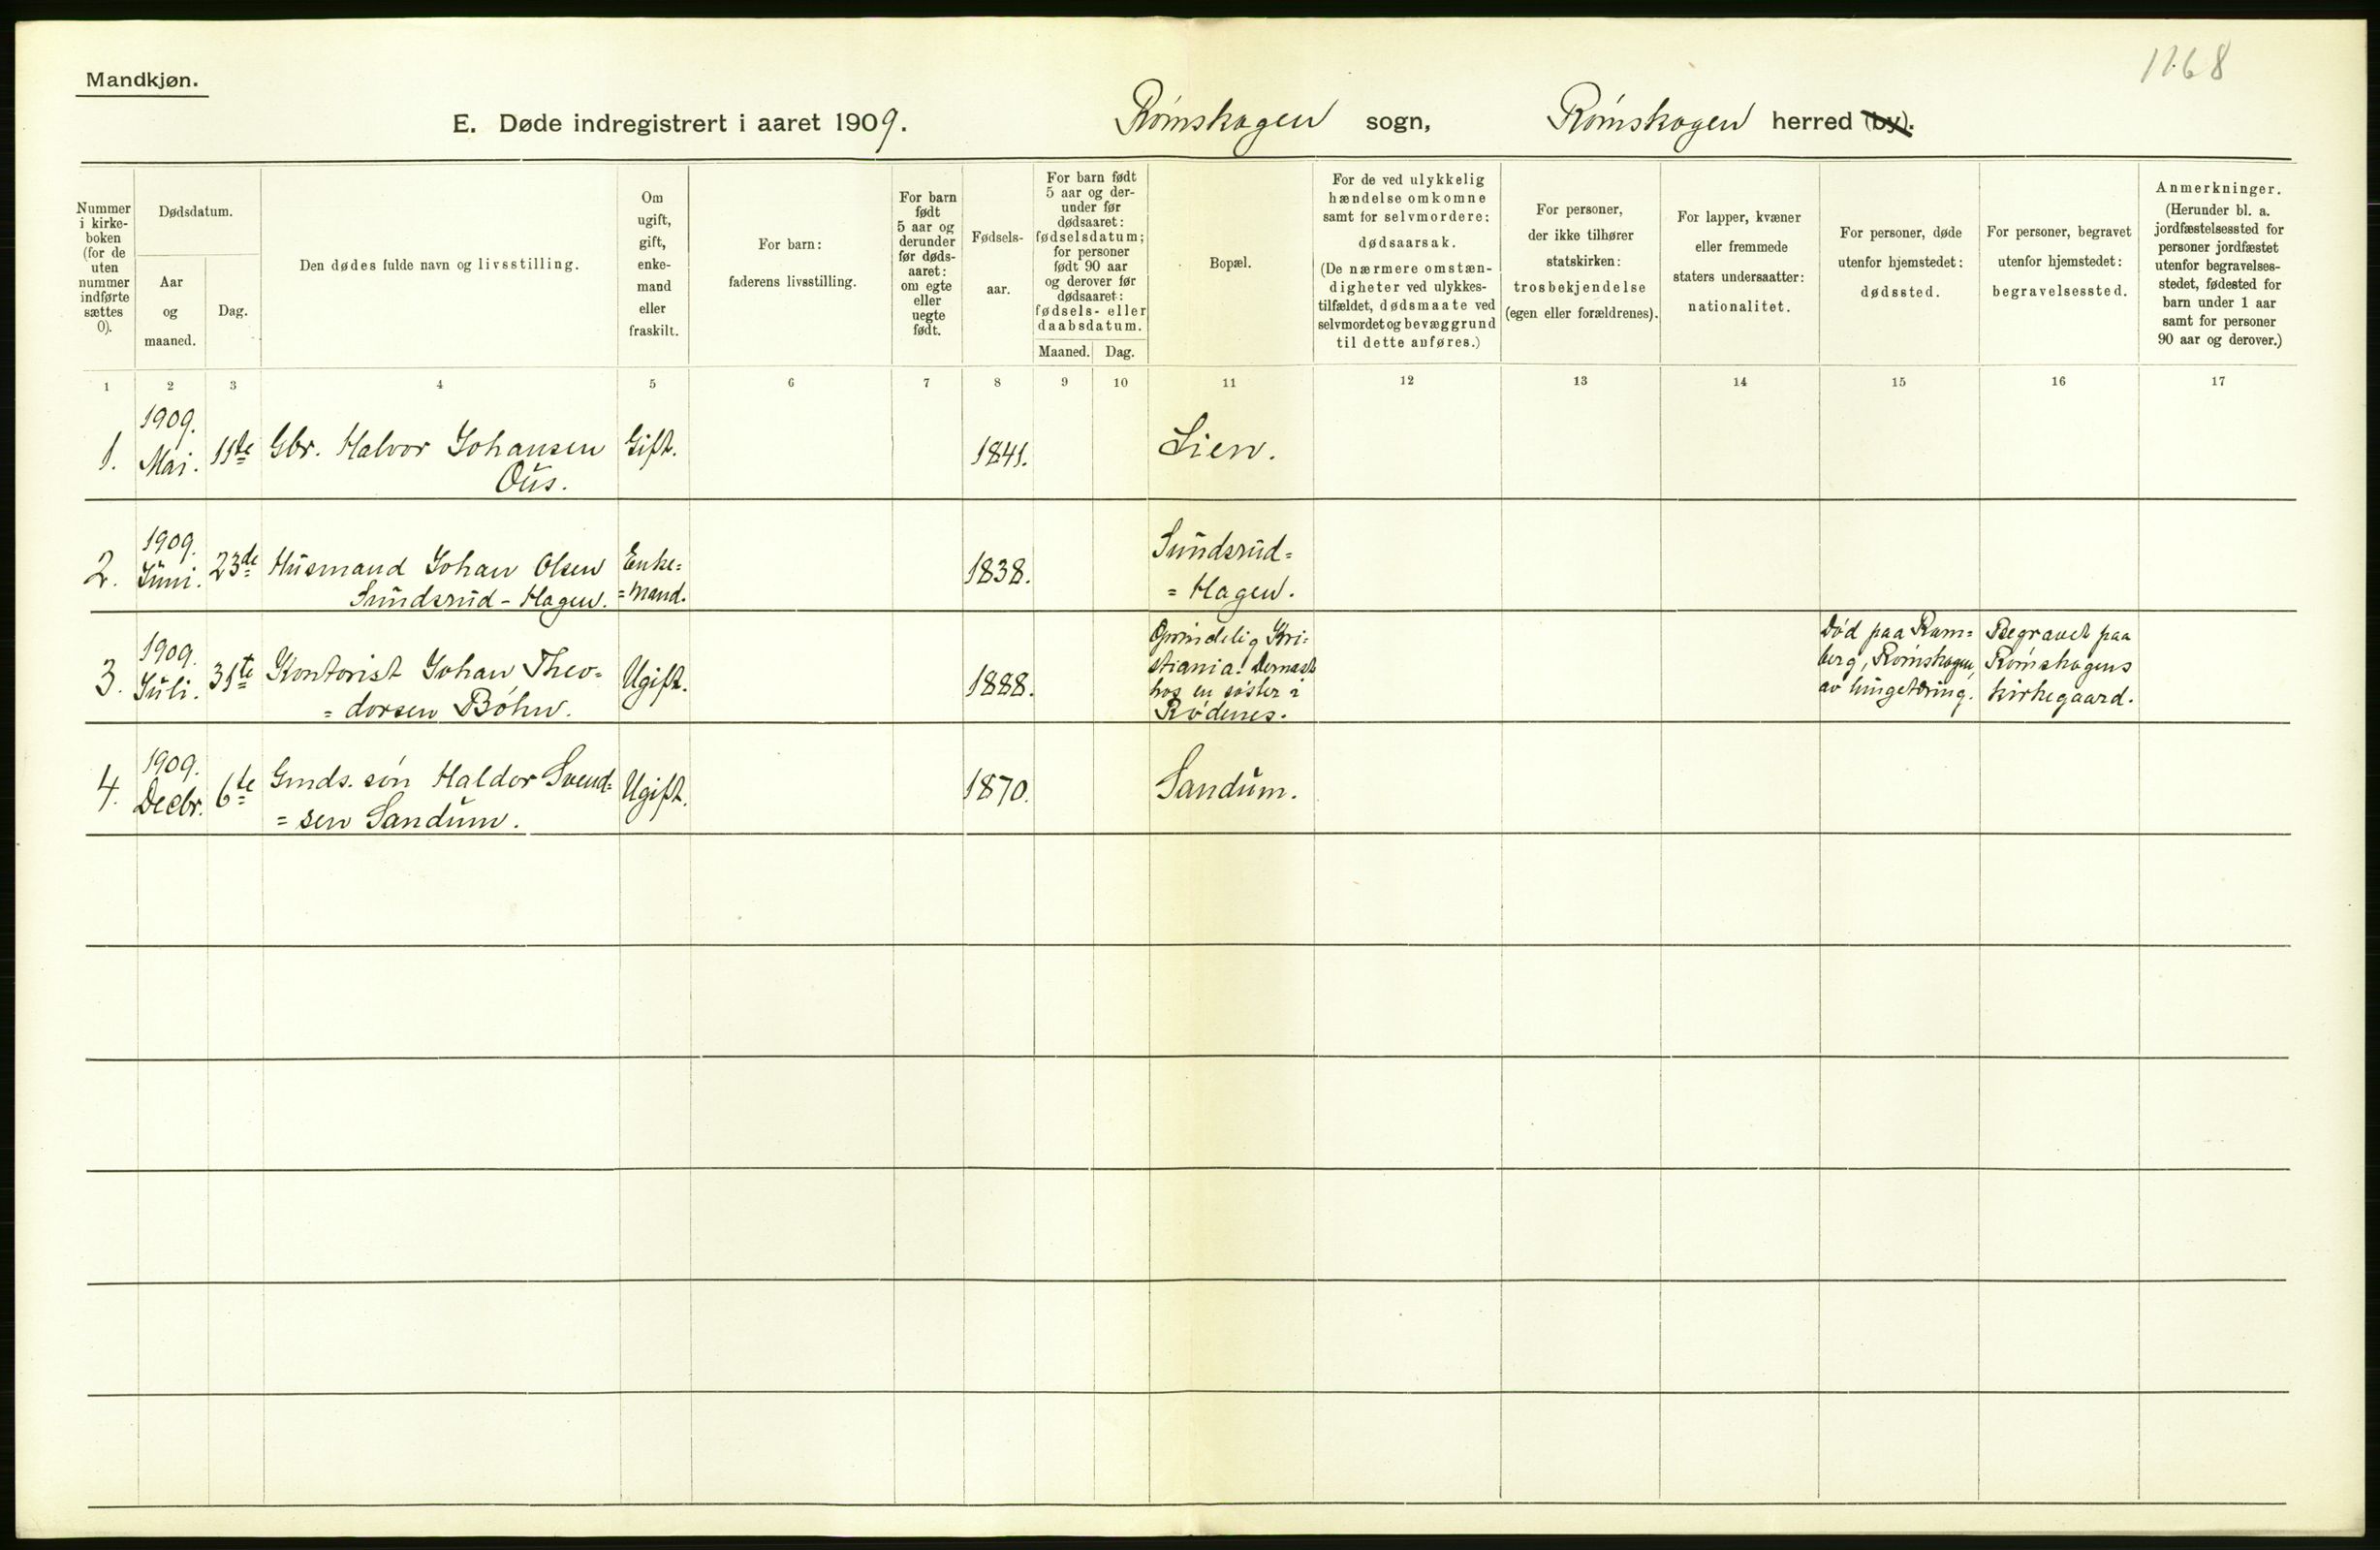 1168
Mandkjøn.
E. Døde indregistrert i aaret 1909. Rømskogen sogn, Rømskogen herred (by).
Nummer
i kirke-
boken
(for de
uten
nummer
indførte
sættes
0).
Dødsdatum.
Aar
og
maaned.
Dag.
Den dødes fulde navn og livsstilling.
Om
ugift,
gift,
enke-
mand
eller
fraskilt.
For barn:
faderens livsstilling.
For barn
født
5 aar og
derunder
før døds-
aaret:
om egte
eller
uegte
født.
Fødsels-
aar.
For barn født
5 aar og der-
under før
dødsaaret:
fødselsdatum;
for personer
født 90 aar
og derover før
dødsaaret:
fødsels- eller
daabsdatum.
Maaned. Dag.
Bopæl.
For de ved ulykkelig
hændelse omkomne
samt for selvmordere:
dødsaarsak.
(De nærmere omstæn-
digheter ved ulykkes-
tilfældet, dødsmaate ved
selvmordet og bevæggrund
til dette anføres.)
For personer,
der ikke tilhører
statskirken:
trosbekjendelse
(egen eller forældrenes).
For lapper, kvæner
eller fremmede
staters undersaatter:
nationalitet.
For personer, døde
utenfor hjemstedet:
dødssted.
For personer, begravet
utenfor hjemstedet:
begravelsessted.
Anmerkninger.
(Herunder bl. a.
jordfæstelsessted for
personer jordfæstet
utenfor begravelses-
stedet, fødested for
barn under 1 aar
samt for personer
90 aar og derover.)
1 2 3 4 5 6 7 8 9 10 11 12 13 14 15 16 17
1909.
1. Mai. 11te Gbr. Halvor Johansen Gift. 1841. Lien.
Ous.
1909. Sundsrud=
2. Juni. 23de Husmand Johan Olsen Enke= 1838.
Sundsrud - Hagen. =mand. = Hagen.
1909.
3. Juli. 31te Kontorist Johan Theo= Ugift. 1888.
= dorsen Bøhn.
Oprindelig Kri=
stiania. Dernæst
hos en søster i
Rødenes.
Død paa Ram=
berg, Rømskogen,
av lungetæring.
Begravet paa
Rømskogens
kirkegaard.
1909.
4. Decbr. 6te Gmds. søn Haldor Svend= Ugift. 1870. Sandum.
= sen Sandum.